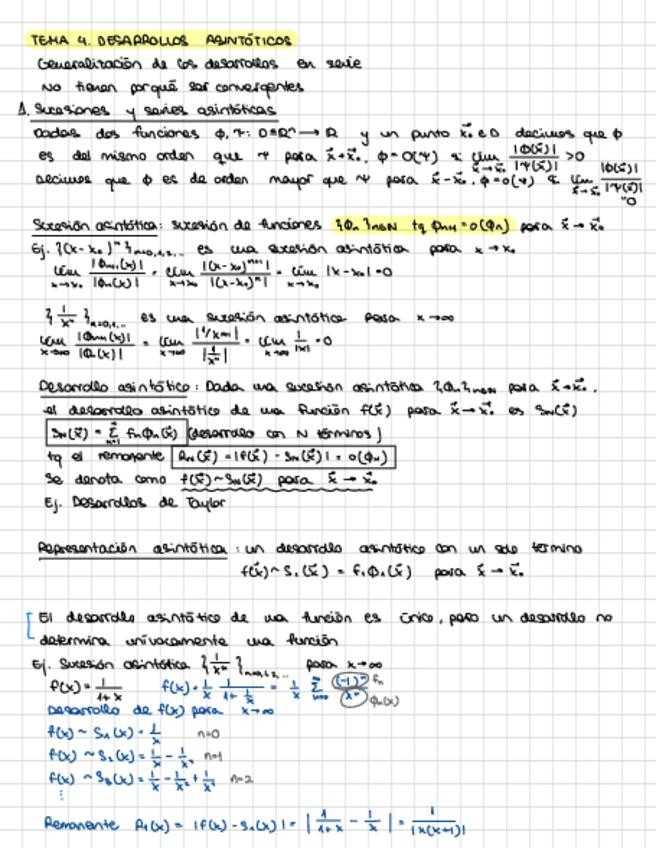 TEMA 4. DESARROLLOS ASINTÓTICOS
Generalización de los desarrollos en serie
No tienen porqué ser convergentes
1. Sucesiones y series asintóticas
Dadas dos funciones ϕ, ψ: D⊆ℝⁿ → ℝ y un punto x⃗₀ ∈ D decimos que ϕ
es del mismo orden que ψ para x⃗→x⃗₀, ϕ=O(ψ) si lim x⃗→x⃗₀ |ϕ(x⃗)|/|ψ(x⃗)| >0
Decimos que ϕ es de orden mayor que ψ para x⃗→x⃗₀, ϕ=o(ψ) si lim x⃗→x⃗₀ |ϕ(x⃗)|/|ψ(x⃗)| =0
Sucesión asintótica: sucesión de funciones {ϕₙ}ₙ∈ℕ tq ϕₙ₊₁=o(ϕₙ) para x⃗→x⃗₀
Ej. {(x-x₀)ⁿ}ₙ₌₀,₁,₂... es una sucesión asintótica para x→x₀
lim x→x₀ |ϕₙ₊₁(x)|/|ϕₙ(x)| = lim x→x₀ |(x-x₀)ⁿ⁺¹|/|(x-x₀)ⁿ| = lim x→x₀ |x-x₀|=0
{1/xⁿ}ₙ₌₀,₁,... es una sucesión asintótica para x→∞
lim x→∞ |ϕₙ₊₁(x)|/|ϕₙ(x)| = lim x→∞ |1/xⁿ⁺¹|/|1/xⁿ| = lim x→∞ 1/|x| =0
Desarrollo asintótico: Dada una sucesión asintótica {ϕₙ}ₙ∈ℕ para x⃗→x⃗₀,
el desarrollo asintótico de una función f(x⃗) para x⃗→x⃗₀ es S_N(x⃗)
S_N(x⃗) = Σ fₙϕₙ(x⃗) (desarrollo con N términos)
tq el remanente R_N(x⃗) = |f(x⃗) - S_N(x⃗)| = o(ϕ_N)
Se denota como f(x⃗)~S_N(x⃗) para x⃗→x⃗₀
Ej. Desarrollos de Taylor
Representación asintótica: un desarrollo asintótico con un solo término
f(x⃗)~S₁(x⃗) = f₁ϕ₁(x⃗) para x⃗→x⃗₀
El desarrollo asintótico de una función es único, pero un desarrollo no
determina unívocamente una función
Ej. Sucesión asintótica {1/xⁿ}ₙ₌₀,₁,₂,... para x→∞
f(x)= 1/(1+x) f(x)= 1/x 1/(1+1/x) = 1/x Σ (-1)ⁿ/xⁿ fₙ ϕₙ(x)
Desarrollo de f(x) para x→∞
f(x) ~ S₁(x) = 1/x n=0
f(x) ~ S₂(x) = 1/x - 1/x² n=1
f(x) ~ S₃(x) = 1/x - 1/x² + 1/x³ n=2
⋮
Remanente R₁(x) = |f(x)-S₁(x)| = |1/(1+x) - 1/x| = 1/|x(x+1)|